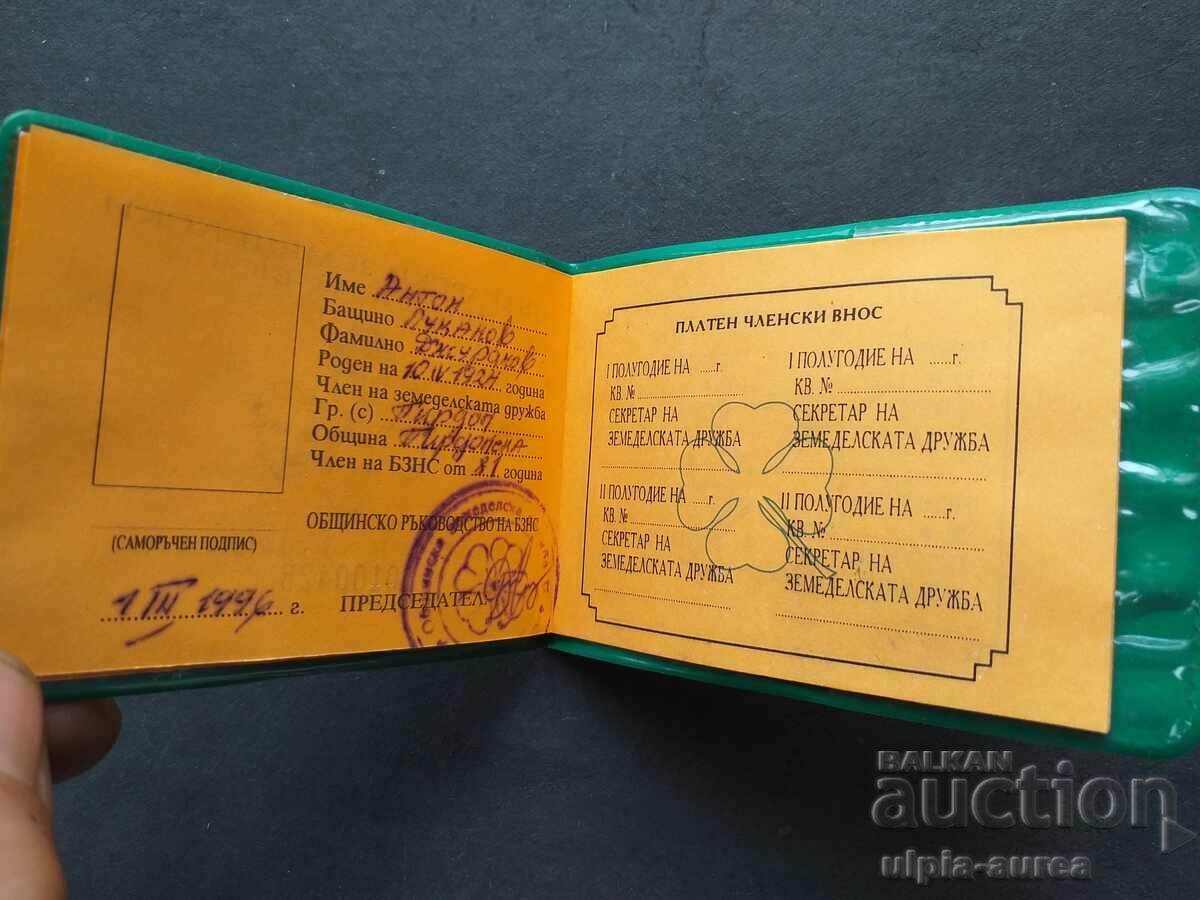 Име Антон
Бащино Луканов
Фамилно Джураков
Роден на 10.IV.1924 година
Член на земеделската дружба
Гр. (с) Пирдоп
Община Пирдопска
Член на БЗНС от година
ОБЩИНСКО РЪКОВОДСТВО НА БЗНС
(САМОРЪЧЕН ПОДПИС)
1 III 1996 г. ПРЕДСЕДАТЕЛ
ПЛАТЕН ЧЛЕНСКИ ВНОС
I ПОЛУГОДИЕ НА ......г.
КВ. №
СЕКРЕТАР НА
ЗЕМЕДЕЛСКАТА ДРУЖБА
I ПОЛУГОДИЕ НА ......г.
КВ. №
СЕКРЕТАР НА
ЗЕМЕДЕЛСКАТА ДРУЖБА
II ПОЛУГОДИЕ НА ......г.
КВ. №
СЕКРЕТАР НА
ЗЕМЕДЕЛСКАТА ДРУЖБА
II ПОЛУГОДИЕ НА ......г.
КВ. №
СЕКРЕТАР НА
ЗЕМЕДЕЛСКАТА ДРУЖБА
BALKAN
auction
ulpia-aurea